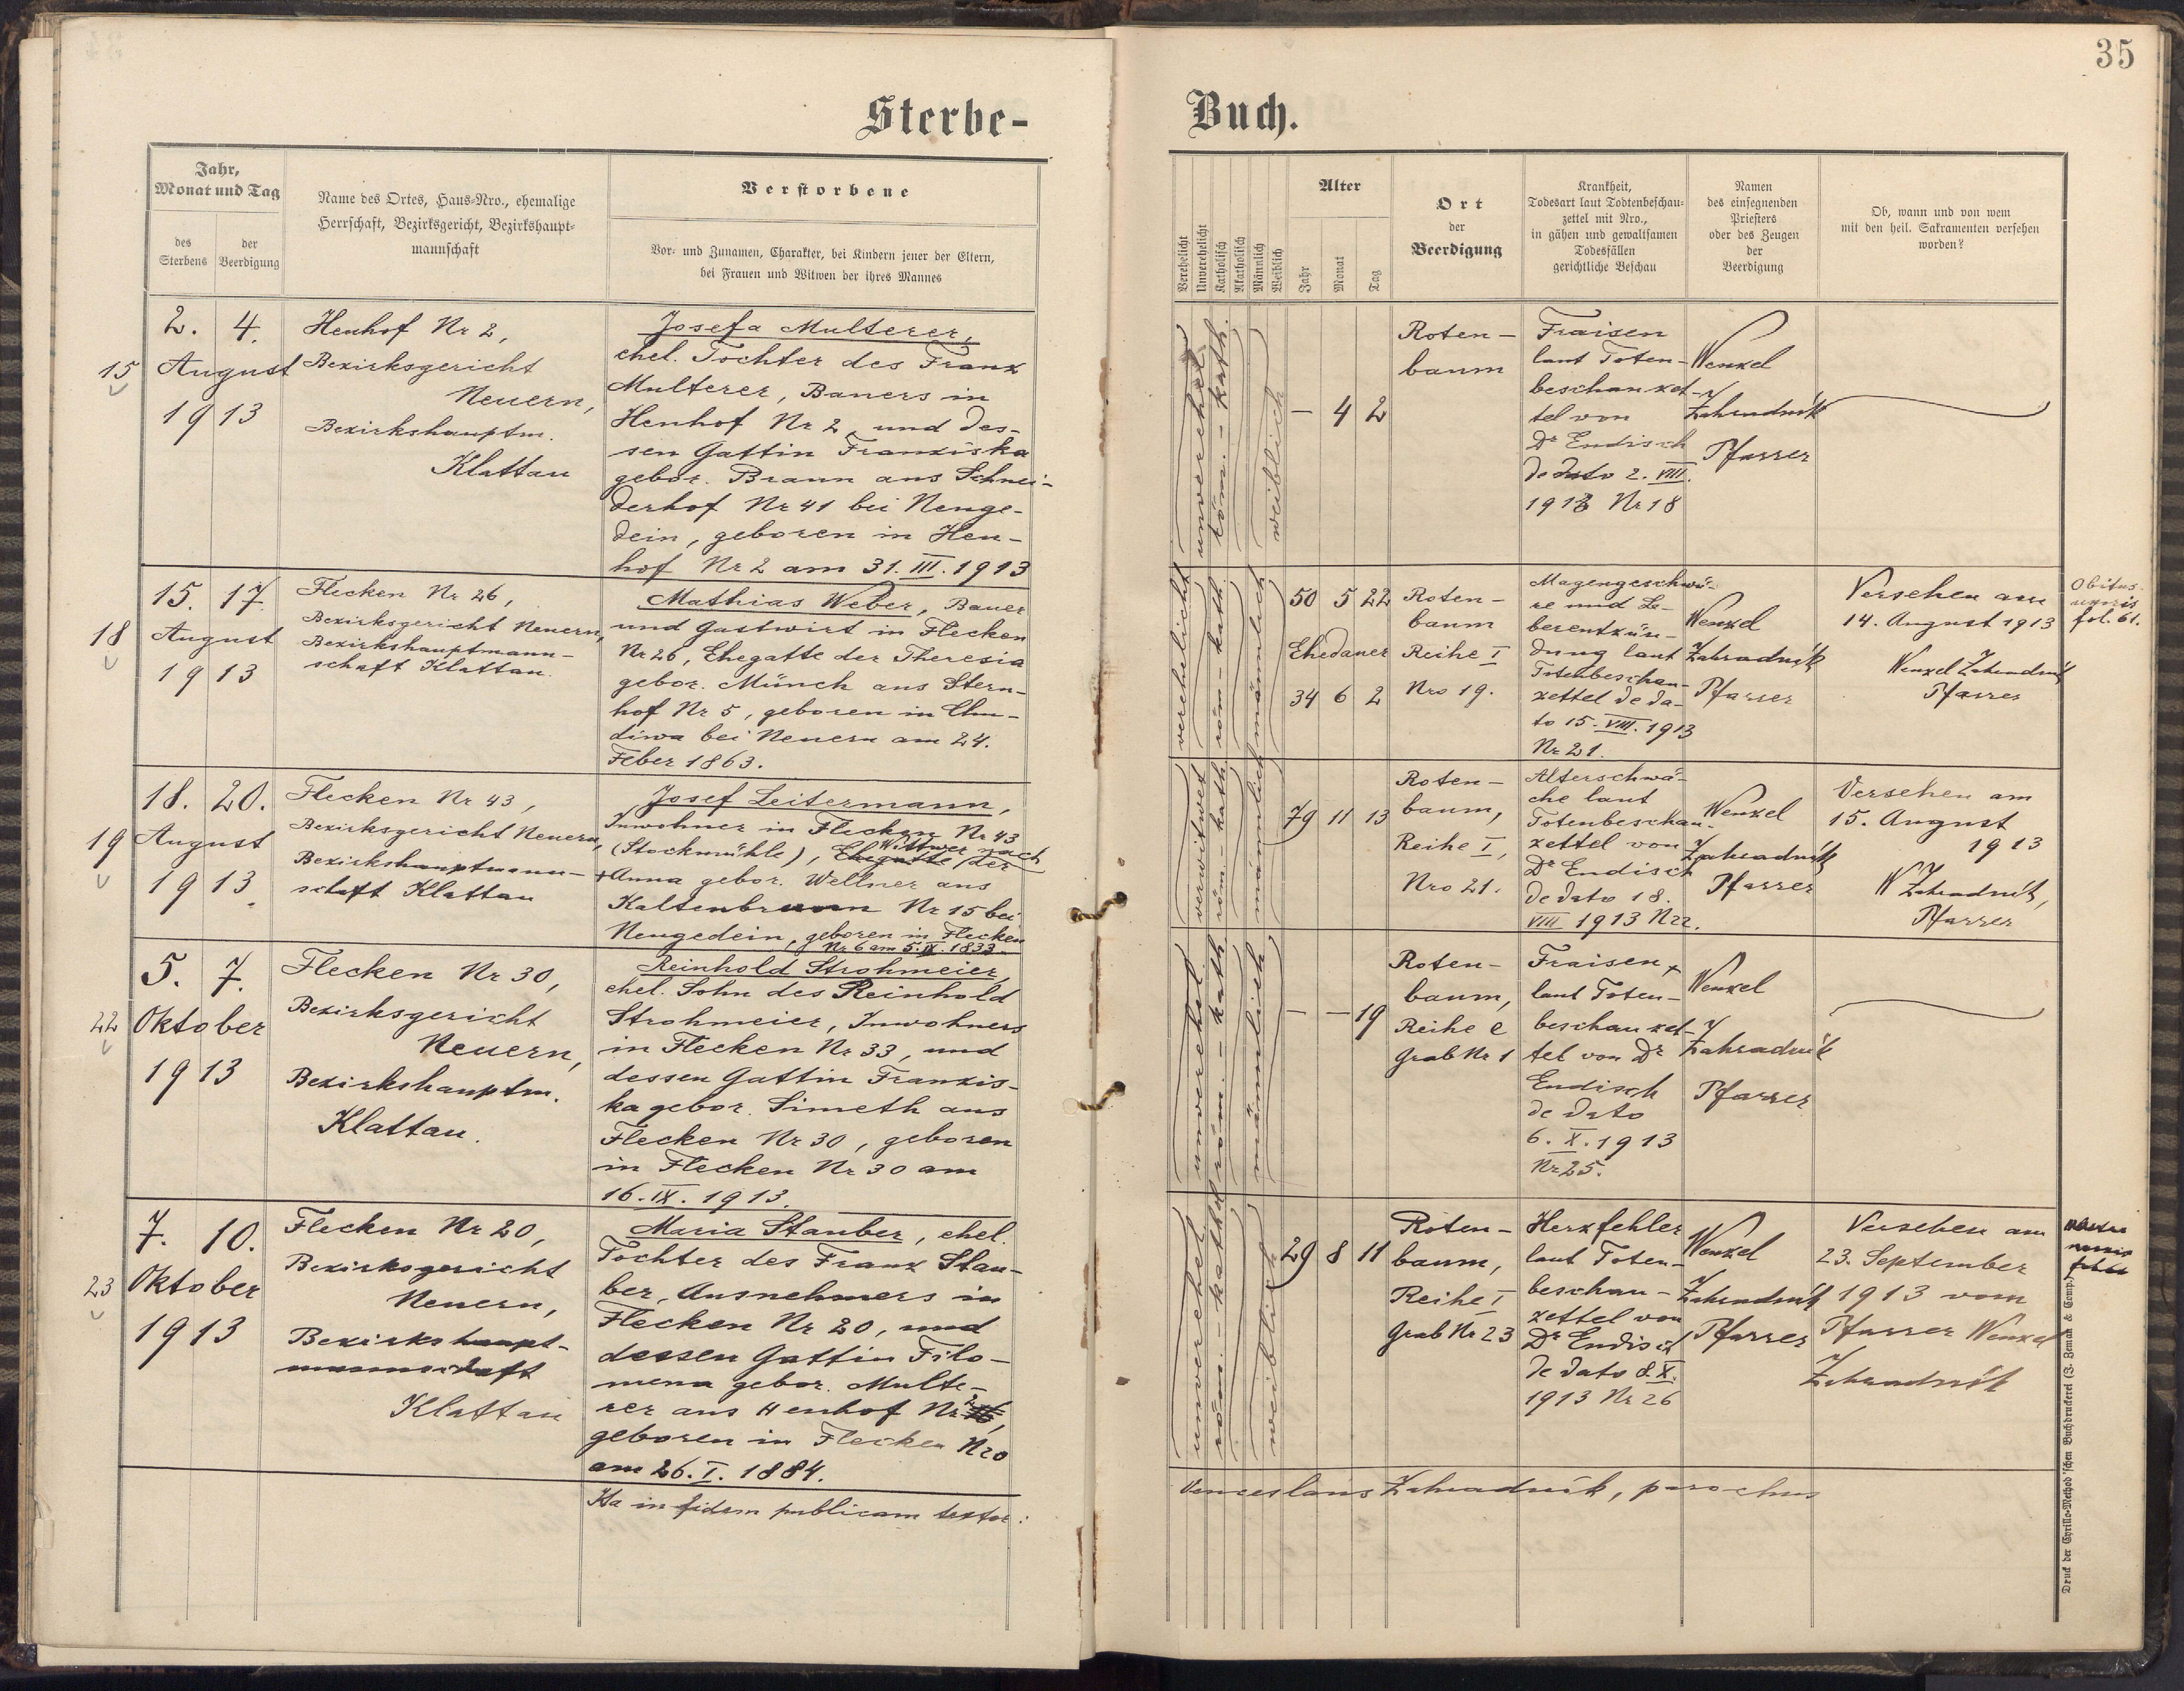 35
Sterbe-
Buch.
Jahr,
Monat und Tag
des
Sterbens
der
Beerdigung
Name des Ortes, Haus-Nro., ehemalige
Herrschaft, Bezirksgericht, Bezirkshaupt-
mannschaft
Verstorbene
Vor- und Zunamen, Charakter, bei Kindern jener der Eltern,
bei Frauen und Witwen der ihres Mannes
Verehelicht
Unverehelicht
Katholisch
Akatholisch
Männlich
Weiblich
Alter
Jahr
Monat
Tag
Ort
der
Beerdigung
Krankheit,
Todesart laut Todtenbeschau-
zettel mit Nro.,
in gähen und gewaltsamen
Todesfällen
gerichtliche Beschau
Namen
des einsegnenden
Priesters
oder des Zeugen
der
Beerdigung
Ob, wann und von wem
mit den heil. Sakramenten versehen
worden?
15
2. 4.
August
1913
Henhof Nr 2,
Bezirksgericht
Neuern,
Bezirkshauptm.
Klattau
Josefa Multerer,
ehel. Tochter des Franz
Multerer, Bauers in
Henhof Nr 2, und des-
sen Gattin Franziska
gebor. Braun aus Schnei-
derhof Nr 41 bei Neuge-
dein, geboren in Hen-
hof Nr 2 am 31. III. 1913
unverehel.
röm. - kath.
weiblich
— 4 2
Roten-
baum
Fraisen
laut Toten-
beschauzet-
tel von
Dr Endisch
de dato 2. VIII.
1913 Nr 18
Wenzel
Zahradník
Pfarrer
18
15. 17.
August
1913
Flecken Nr 26,
Bezirksgericht Neuern,
Bezirkshauptmann-
schaft Klattau.
Mathias Weber, Bauer
und Gastwirt in Flecken
Nr 26, Ehegatte der Theresia
gebor. Münch aus Stern-
hof Nr 5, geboren in Chu-
diwa bei Neuern am 24.
Feber 1863.
verehelicht
röm - kath.
männlich
50 5 22
Ehedauer
34 6 2
Roten-
baum
Reihe I
Nro 19.
Magengeschwü-
re und Le-
berentzün-
dung laut
Totenbeschau-
zettel de da-
to 15. VIII. 1913
Nr 21.
Wenzel
Zahradník
Pfarrer
Versehen am
14. August 1913
Wenzel Zahradník
Pfarrer
Obitus
fol. 61.
19
18. 20.
August
1913.
Flecken Nr 43,
Bezirksgericht Neuern,
Bezirkshauptmann-
schaft Klattau
Josef Leitermann,
Inwohner in Flecken Nr 43
(Stockmühle), Ehegatte der
Wittwer nach
+ Anna gebor. Wellner aus
Kaltenbrunn Nr 15 bei
Neugedein, geboren in Flecken
Nr 6 am 5. IX. 1833.
verwitwet
röm. - kath.
männlich
79 11 13
Roten-
baum,
Reihe I,
Nro 21.
Alterschwä-
che laut
Totenbeschau-
zettel von
Dr Endisch
de dato 18.
VIII 1913 N22.
Wenzel
Zahradník
Pfarrer
Versehen am
15. August
1913
W Zahradník,
Pfarrer
22
5. 7.
Oktober
1913
Flecken Nr 30,
Bezirksgericht
Neuern,
Bezirkshauptm.
Klattau.
Reinhold Strohmeier
ehel. Sohn des Reinhold
Strohmeier, Inwohners
in Flecken Nr 33, und
dessen Gattin Franzis-
ka gebor. Simeth aus
Flecken Nr 30, geboren
in Flecken Nr 30 am
16. IX. 1913.
unverehel.
röm. - kath
männlich
— — 19
Roten-
baum,
Reihe e
Grab Nr 1
Fraisen,
laut Toten-
beschauzet-
tel von Dr
Endisch
de dato
6. X. 1913
Nr 25.
Wenzel
Zahradník
Pfarrer
23
7. 10.
Oktober
1913
Flecken Nr 20,
Bezirksgericht
Neuern,
Bezirkshaupt-
mannschaft
Klattau
Maria Stauber, ehel.
Tochter des Franz Stau-
ber, Ausnehmers in
Flecken Nr 20, und
dessen Gattin Filo-
mena gebor. Multe-
rer aus Henhof Nr 2,
geboren in Flecken N20
am 26. I. 1884.
unverehel
röm. - kathol
weiblich
29 8 11
Roten-
baum,
Reihe I
Grab Nr 23
Herzfehler
laut Toten-
beschau-
zettel von
Dr Endisch
de dato 8. X.
1913 Nr 26
Wenzel
Zahradník
Pfarrer
Versehen am
23. September
1913 vom
Pfarrer Wenzel
Zahradník
Ita in fidem publicam testor:
Venceslaus Zahradník, parochus
Druck der Cyrillo-Method'schen Buchdruckerei (J. Zeman & Comp.)